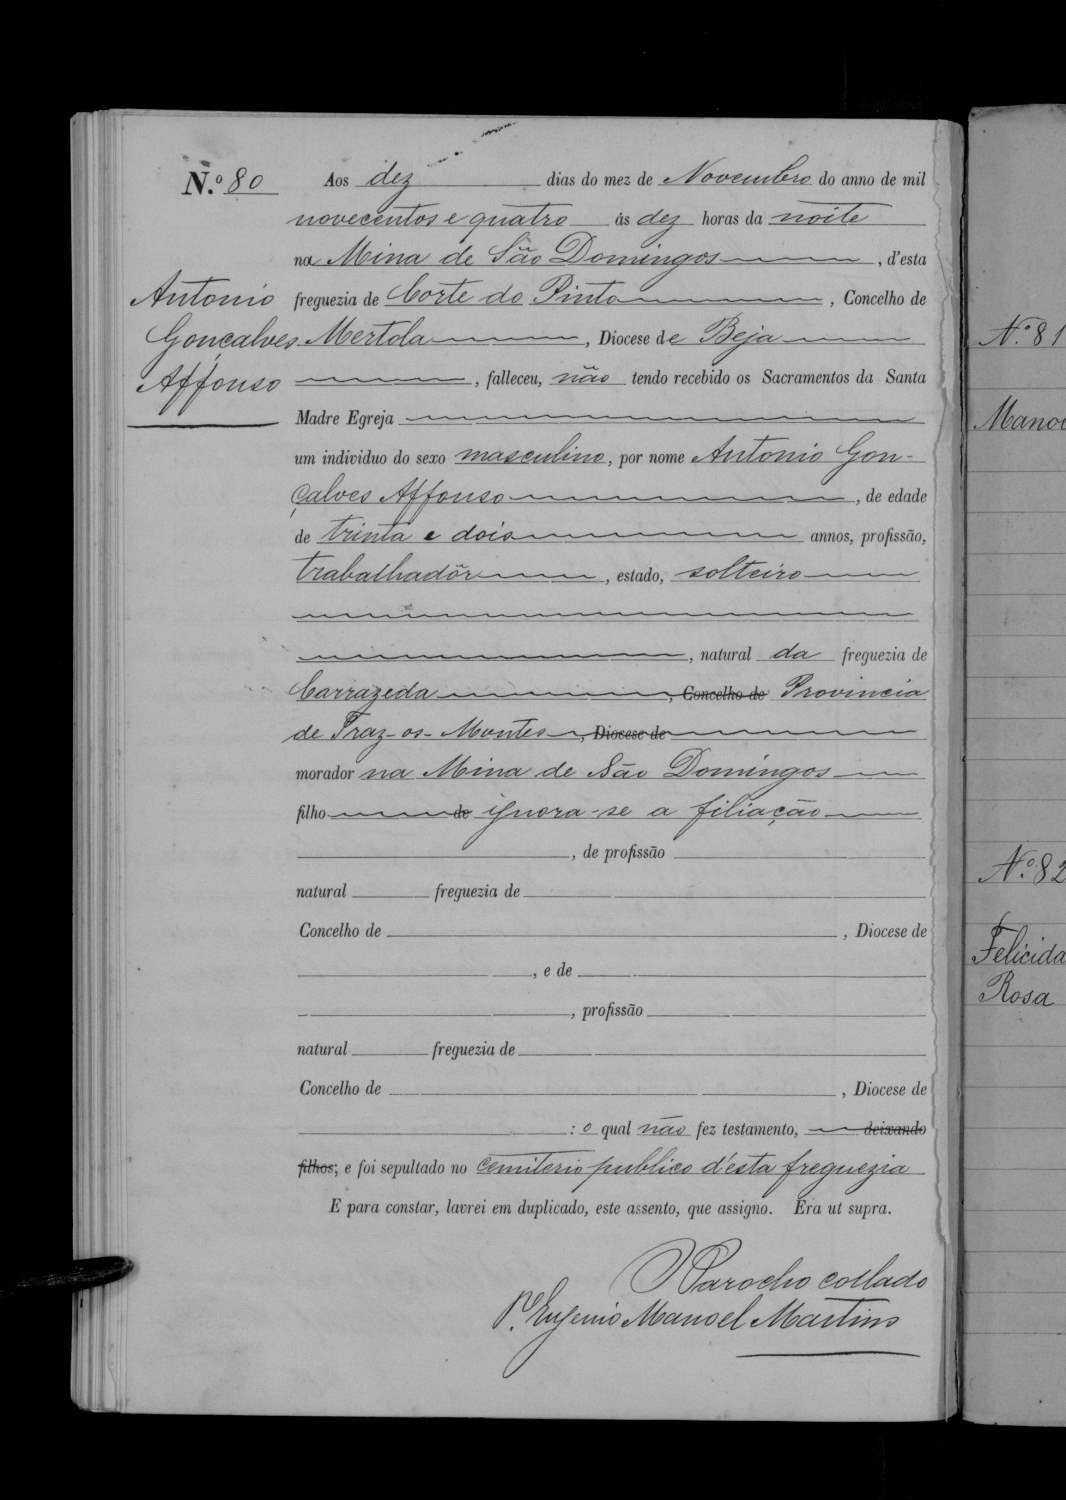 N.º 80
Aos dez dias do mez de Novembro do anno de mil
novecentos e quatro ás dez horas da noite
na Mina de São Domingos, d'esta
Antonio
Gonçalves
Affonso
freguezia de Corte do Pinto, Concelho de
Mertola, Diocese de Beja
, falleceu, não tendo recebido os Sacramentos da Santa
Madre Egreja
um individuo do sexo masculino, por nome Antonio Gon-
çalves Affonso, de edade
de trinta e dois annos, profissão,
trabalhadôr, estado, solteiro
, natural da freguezia de
Carrazeda, Concelho de Provincia
de Traz-os-Montes, Diocese de
morador na Mina de São Domingos
filho de ignora-se a filiação
, de profissão
natural freguezia de
Concelho de , Diocese de
, e de
, profissão
natural freguezia de
Concelho de , Diocese de
: o qual não fez testamento, deixando
filhos, e foi sepultado no cemiterio publico d'esta freguezia
E para constar, lavrei em duplicado, este assento, que assigno. Era ut supra.
O Parocho collado
P.e Eugenio Manoel Martins
N.º 81
Manoe
N.º 82
Felicida
Rosa